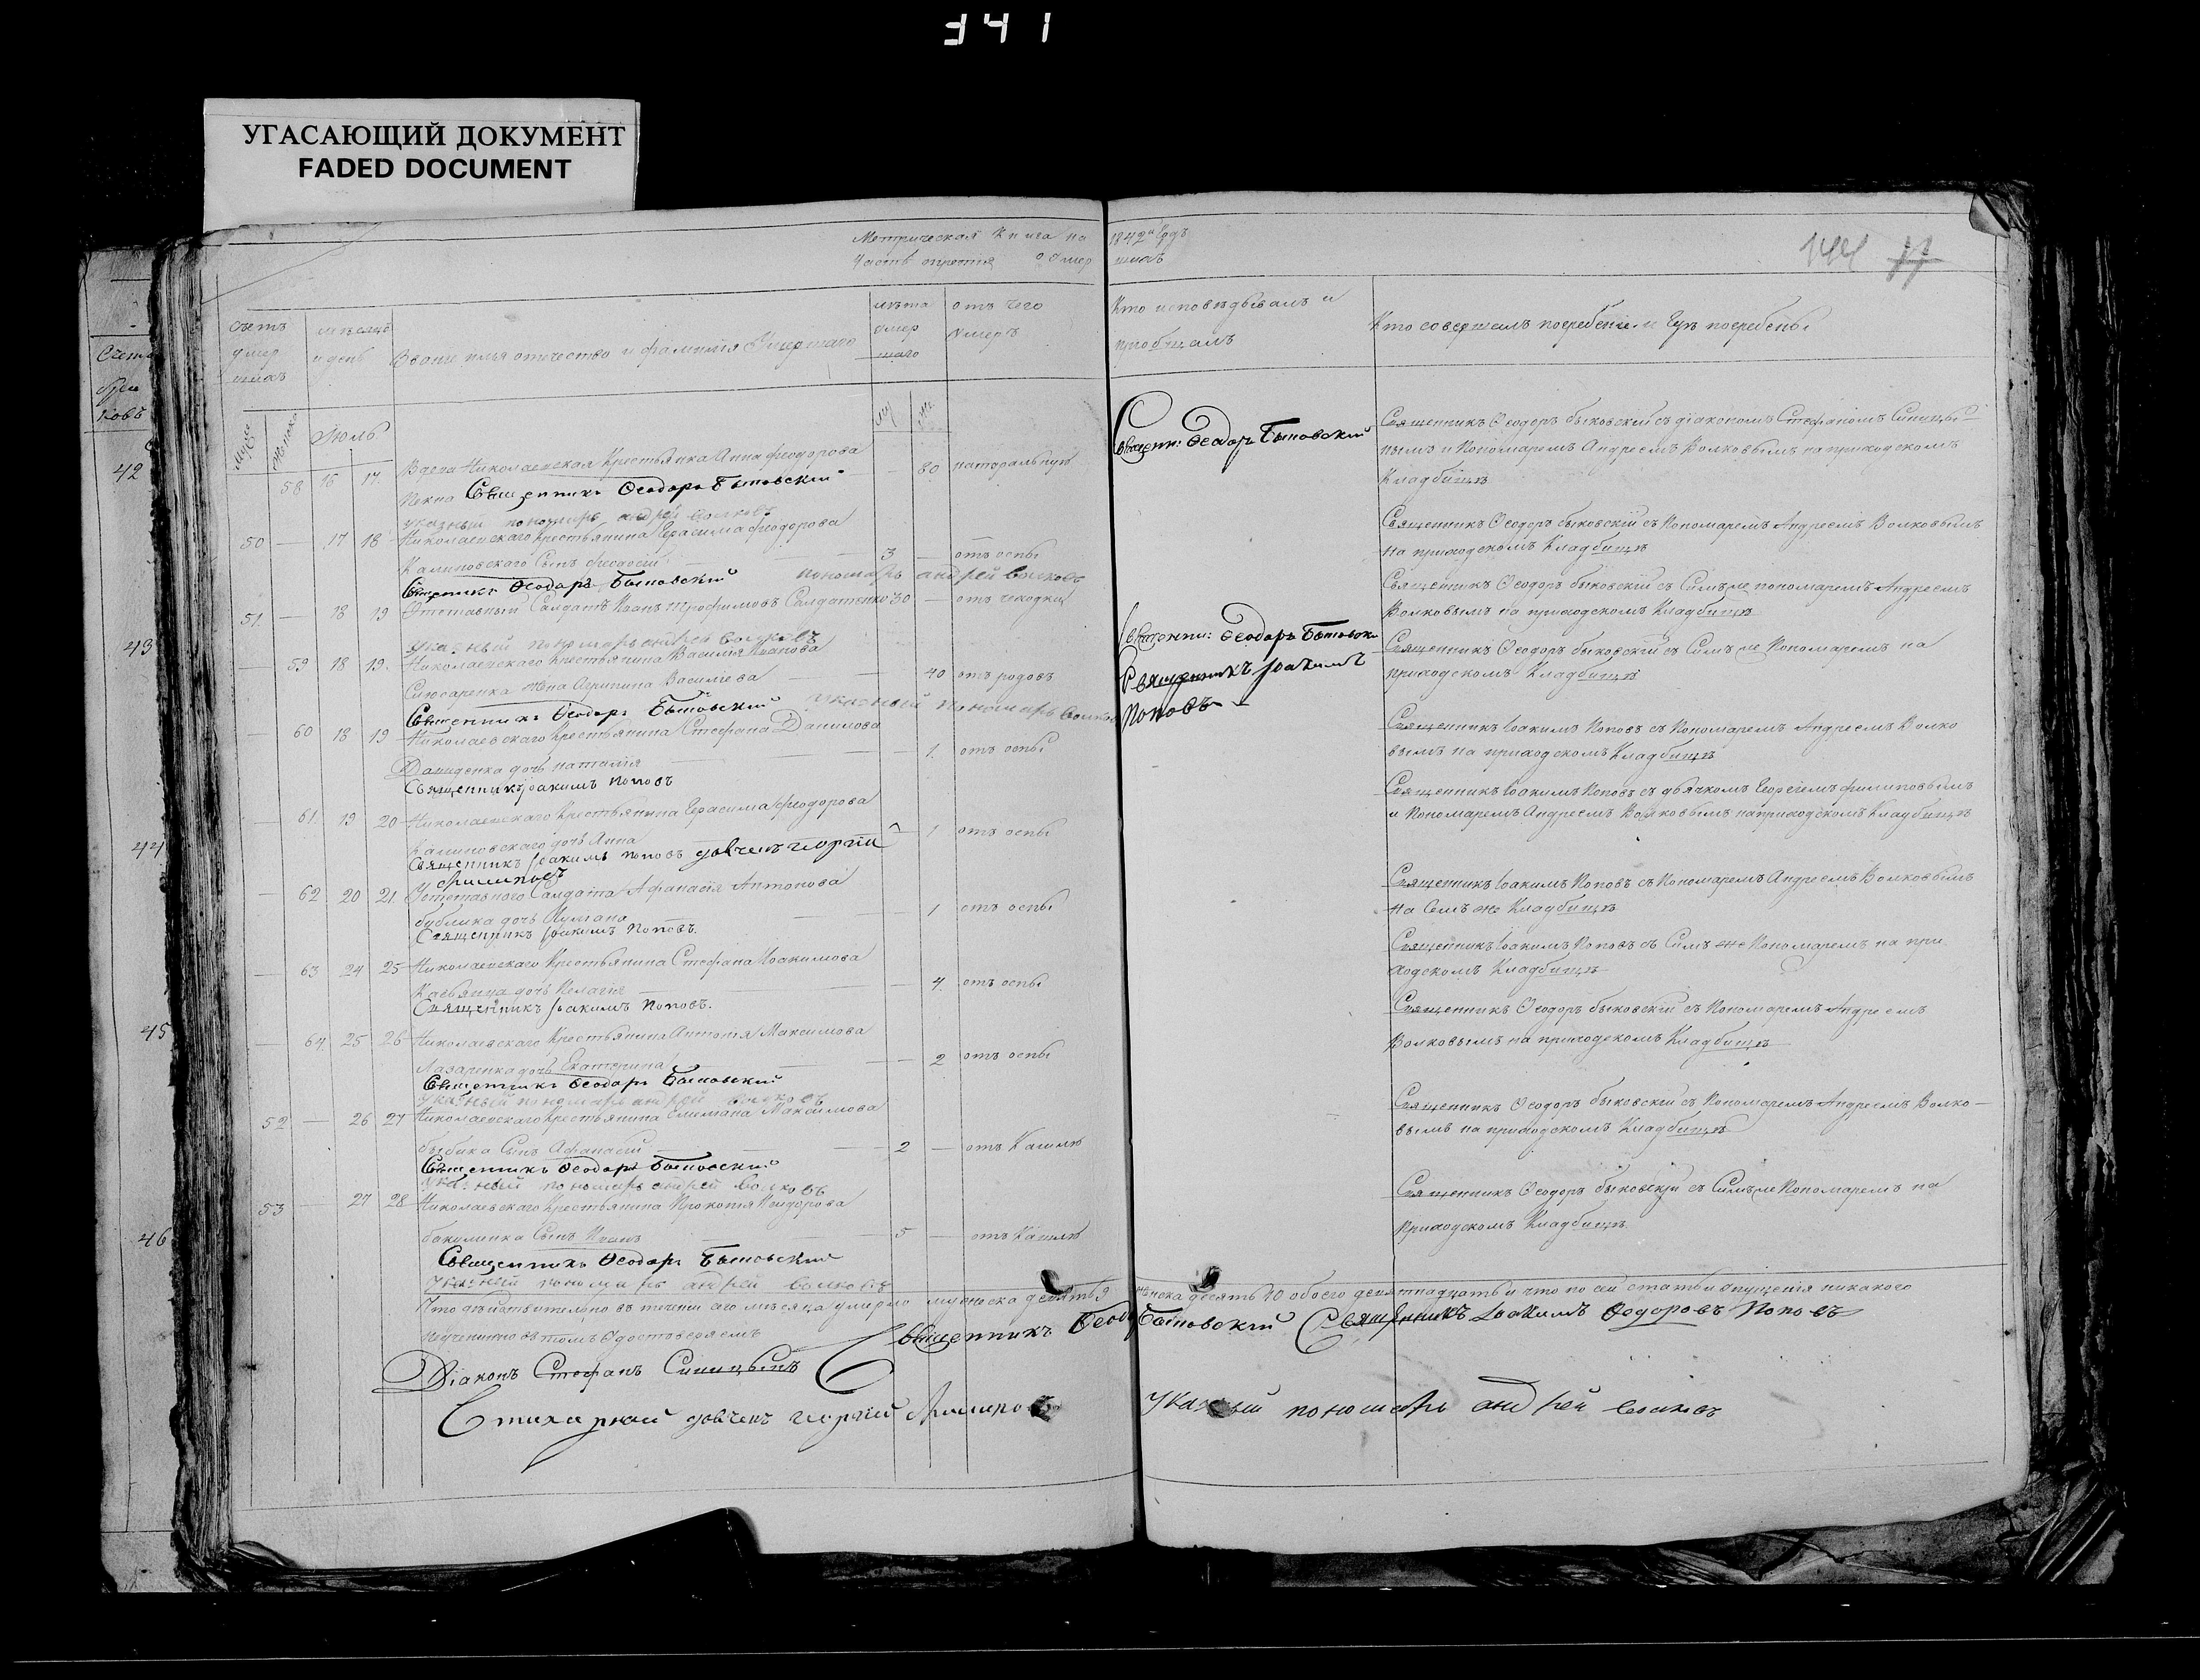 341
УГАСАЮЩИЙ ДОКУМЕНТ
FADED DOCUMENT
Метрическая Книга на 1842й Годъ
Часть третія О Умершихъ
144
Счетъ умершихъ
мѣсяцъ и день
Званіе имя отчество и фамилія Умершаго
лѣта умершаго
отъ чего Умеръ
Кто исповѣдывалъ и пріобщалъ
Кто совершалъ погребеніе и гдѣ погребены
Июль
58 16 17
Николаевская Крестьянка Анна Феодорова
80 натуральную
Священникъ Ѳеодоръ Быковскій
указный пономарь андрей волковъ
Священн: Ѳеодоръ Быковскій
Священникъ Ѳеодоръ Быковскій съ діакономъ Стефаномъ Синицы
нымъ и Пономаремъ Андреемъ Волковымъ на приходскомъ
Кладбищѣ
50 — 17 18 Николаевскаго Крестьянина Герасима Феодорова
Калиновскаго Сынъ
3 — отъ оспы
Священникъ Ѳеодоръ Быковскій пономарь андрей волковъ
Священникъ Ѳеодоръ Быковскій съ Пономаремъ Андреемъ Волковымъ
на приходскомъ Кладбищѣ
51 — 18 19 Отставный Салдатъ Иванъ Трофимовъ Салдатенко 30 — отъ чеходки
указный пономарь андрей волковъ
Священникъ Ѳеодоръ Быковскій съ Симъ же пономаремъ Андреемъ
Волковымъ на приходскомъ Кладбищѣ
— 59 18 19 Николаевскаго Крестьянина Василія Иванова
Слюсаренка жена Агрипина Василіева — 40 отъ родовъ
Священникъ Ѳеодоръ Быковскій указный пономарь волковъ
Священни: Ѳеодоръ Быковскі
Священникъ Іоакимъ
Поповъ
Священникъ Ѳеодоръ Быковскій съ Симъ же Пономаремъ на
приходскомъ Кладбищѣ
— 60 18 19 Николаевскаго Крестьянина Стефана Данилова
Давиденка дочь наталія — 1 отъ оспы
Священникъ Іоакимъ Поповъ
Священникъ Іоакимъ Поповъ съ Пономаремъ Андреемъ Волко
вымъ на приходскомъ Кладбищѣ
— 61 19 20 Николаевскаго Крестьянина Герасима Феодорова
Калиновскаго дочь Анна — 1 отъ оспы
Священникъ Іоакимъ Поповъ дьячекъ георгій
Филиповъ
Священникъ Іоакимъ Поповъ съ дьячкомъ Георгіемъ Филиповымъ
и Пономаремъ Андреемъ Волковымъ на приходскомъ Кладбищѣ
— 62 20 21 Отставного Салдата Афанасія Антонова
бублика дочь — 1 отъ оспы
Священникъ Іоакимъ Поповъ
Священникъ Іоакимъ Поповъ съ Пономаремъ Андреемъ Волковымъ
на Семъ же Кладбищѣ
— 63 24 25 Николаевскаго Крестьянина Стефана Иоакимова
дочь Пелагія — 4 отъ оспы
Священникъ Іоакимъ Поповъ.
Священникъ Іоакимъ Поповъ съ Симъ же Пономаремъ на при
ходскомъ Кладбищѣ
— 64 25 26 Николаевскаго Крестьянина Антонія Максимова
Лазаренка дочь Екатерина — 2 отъ оспы
Священникъ Ѳеодоръ Быковскій
указный пономарь андрей волковъ
Священникъ Ѳеодоръ Быковскій съ Пономаремъ Андреемъ
Волковымъ на приходскомъ Кладбищѣ
52 — 26 27 Николаевскаго Крестьянина Максимова
Сынъ Афанасій — 2 — отъ Кашлю
Священникъ Ѳеодоръ Быковскій
указный пономарь андрей волковъ
Священникъ Ѳеодоръ Быковскій съ Пономаремъ Андреемъ Волко—
вымъ на приходскомъ Кладбищѣ
53 — 27 28 Николаевскаго Крестьянина Прокопія
Сынъ Иванъ — 5 — отъ Кашлю
Священникъ Ѳеодоръ Быковскій
указный пономарь андрей волковъ
Священникъ Ѳеодоръ Быковскій съ Симъ же Пономаремъ на
приходскомъ Кладбищѣ
Что дѣйствительно въ теченіи сего мѣсяца умерло мужеска девять 9 женска десять 10 обоего девятнадцать и что по сей статьи опущенія никакого
неучинино вътомъ Удостоверяемъ
Священникъ Ѳеодоръ Быковскій Священникъ Іоакимъ Ѳедоровъ Поповъ
Діаконъ Стефанъ Синицынъ
Стихарный дьячекъ георгій Филиповъ указный пономарь андрей волковъ
42
43
44
45
46